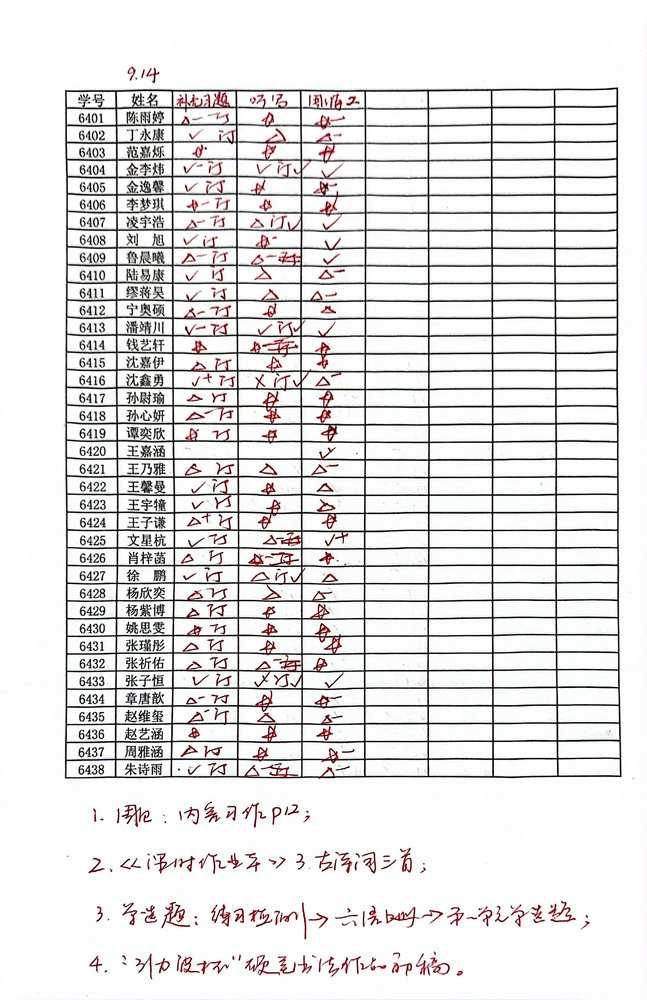 9.14
学号 姓名 补充习题 听写 周练2
6401 陈雨婷 △- 订 ☆ ☆-
6402 丁永康 ✓ 订 △ △-
6403 范嘉烁 ☆ ☆ ☆
6404 金李炜 ✓- 订 ✓ 订✓ ✓
6405 金逸馨 ✓ 订 ☆ ☆-
6406 李梦琪 ☆- 订 ☆ ☆
6407 凌宇浩 △- 订 △ 订✓ ✓
6408 刘旭 ✓ 订 ☆- ✓
6409 鲁晨曦 △- 订 △- 订 ✓
6410 陆易康 ✓ 订 △ △-
6411 缪蒋昊 ✓ 订 △ △-
6412 宁奥硕 △- 订 ☆ △
6413 潘靖川 ✓- 订 ✓ 订✓ ✓
6414 钱艺轩 ☆ ☆- 订 ☆
6415 沈嘉伊 △ 订 ☆ ☆
6416 沈鑫勇 ✓+ 订 × 订✓ △-
6417 孙尉瑜 △ 订 ☆ ☆
6418 孙心妍 △- 订 ☆ ☆
6419 谭奕欣 ☆ 订 ☆ ☆
6420 王嘉涵 ✓
6421 王乃雅 △ 订 △ △-
6422 王馨曼 ✓ 订 ☆ △
6423 王宇犝 ✓ 订 ☆ △
6424 王子谦 △+ 订 ☆ ☆
6425 文星杭 ✓ 订 △- 订 ✓+
6426 肖梓菡 △ 订 ☆- 订 ☆
6427 徐鹏 ✓ 订 △ 订✓ △
6428 杨欣奕 △ 订 △ △-
6429 杨紫博 △ 订 ☆ ☆
6430 姚思雯 ☆ 订 ☆ ☆
6431 张瑾彤 △ 订 ☆ ☆
6432 张祈佑 △ 订 △- 订 ☆
6433 张子恒 ✓ 订 ✓ 订✓ ✓
6434 章唐歆 △- 订 ☆ ☆-
6435 赵维玺 △- 订 △ △-
6436 赵艺涵 ☆ ☆ ☆
6437 周雅涵 △ 订 ☆ ☆-
6438 朱诗雨 ✓ 订 △- 订 △-
1. 周记:内容习作P12;
2.《课时作业本》3.古诗词三首;
3. 学选题:练习检测→六语→第一单元学选题;
4. "引力波杯"硬笔书法作品初稿。